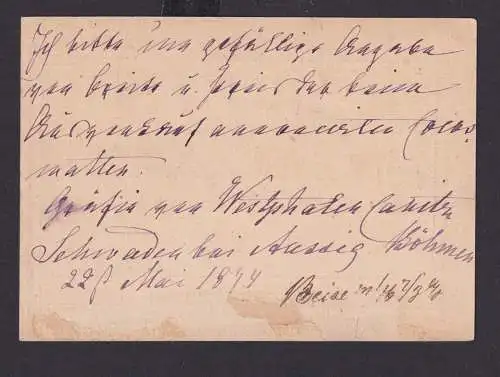 Ich bitte um gefällige Angabe
von Breite u. Preis der beim
Ausverkauf annoncirten Cocos-
matten.
Gräfin von Westphalen
Schwaden bei Aussig Böhmen
22 Mai 1894